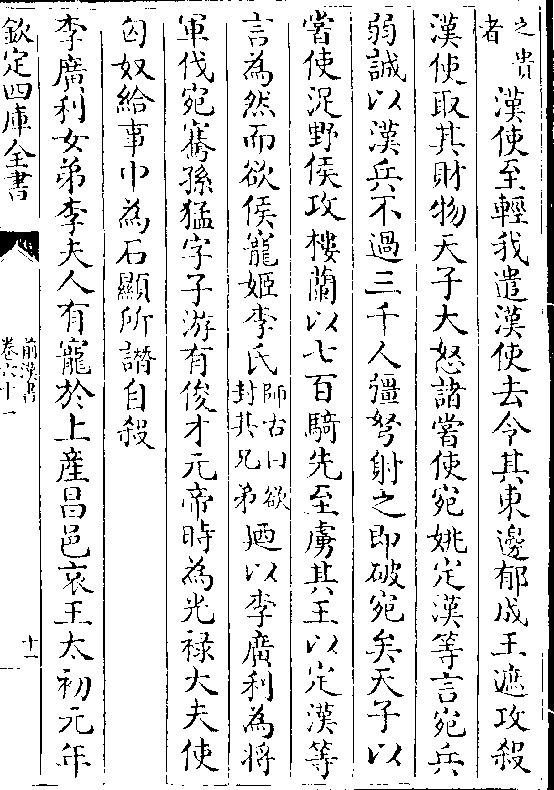 之貴
者
漢使至輕我遣漢使去令其東邊郁成王遮攻殺
漢使取其財物天子大怒諸嘗使宛姚定漢等言宛兵
弱誠以漢兵不過三千人彊弩射之即破宛矣天子以
嘗使浞野侯攻樓蘭以七百騎先至虜其王以定漢等
言為然而欲侯寵姬李氏師古曰欲封其兄弟廼以李廣利為將
軍伐宛騫孫猛字子游有俊才元帝時為光祿大夫使
匈奴給事中為石顯所譖自殺
李廣利女弟李夫人有寵於上產昌邑哀王太初元年
欽定四庫全書
前漢書
卷六十一
十一